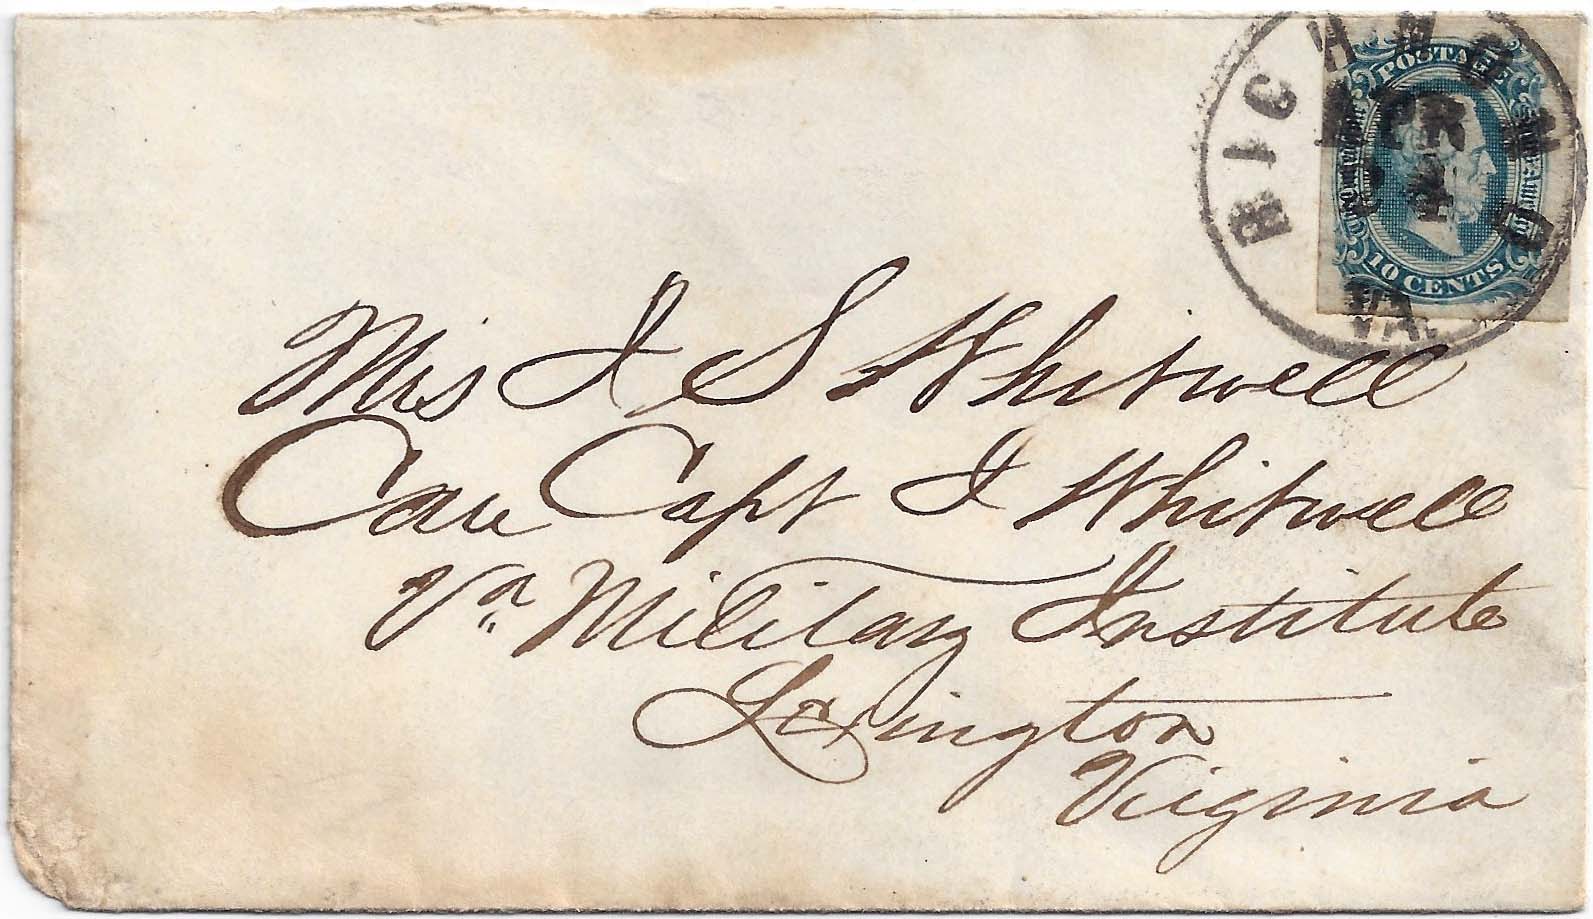 RICHMOND
APR
24
VA.
POSTAGE
10 CENTS
Mrs J S Whitwell
Care Capt J Whitwell
Va Military Institute
Lexington
Virginia